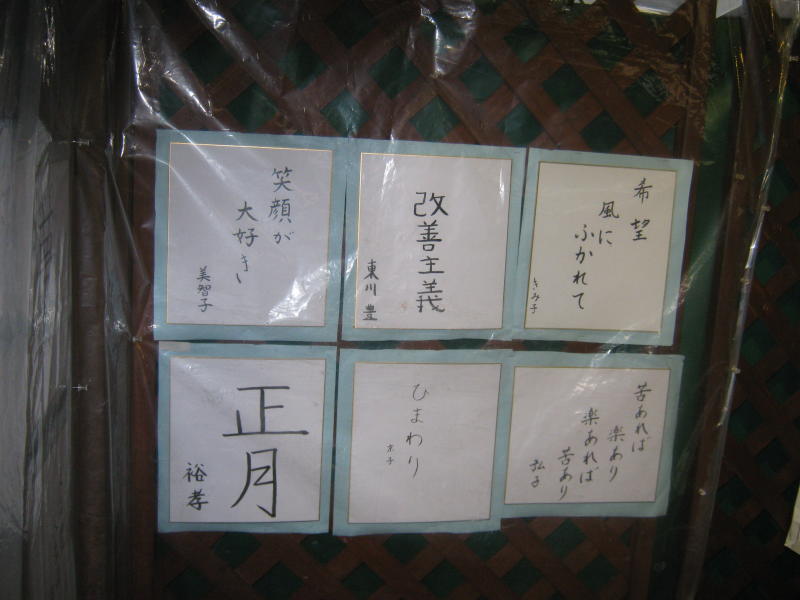 希望
風に
ふかれて
きみ子
改善主義
東川豊
笑顔が
大好き
美智子
苦あれば
楽あり
楽あれば
苦あり
弘子
ひまわり
京子
正月
裕孝